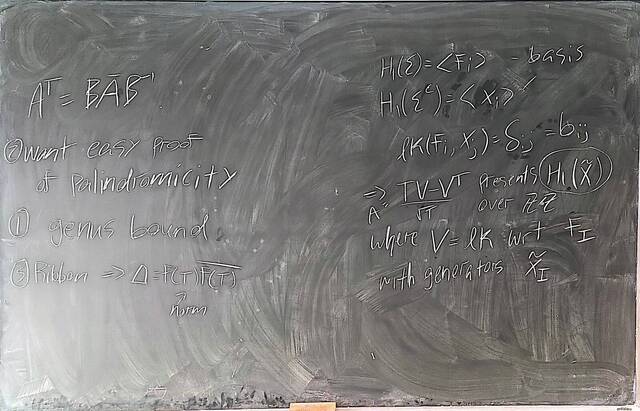 Aᵀ = BĀB⁻¹
② Want easy proof
of palindromicity
① genus bound
③ Ribbon => Δ = F(T)F̅(̅T̅)̅
↑
norm
H₁(Σ) = <Fᵢ> - basis
H₁(Σᶜ) = <Xⱼ>
lk(Fᵢ, Xⱼ) = δᵢⱼ = bᵢⱼ
=> A = (TV-Vᵀ)/√T presents H₁(X̃)
over
where V = lk wrt F_I
with generators X̃_I